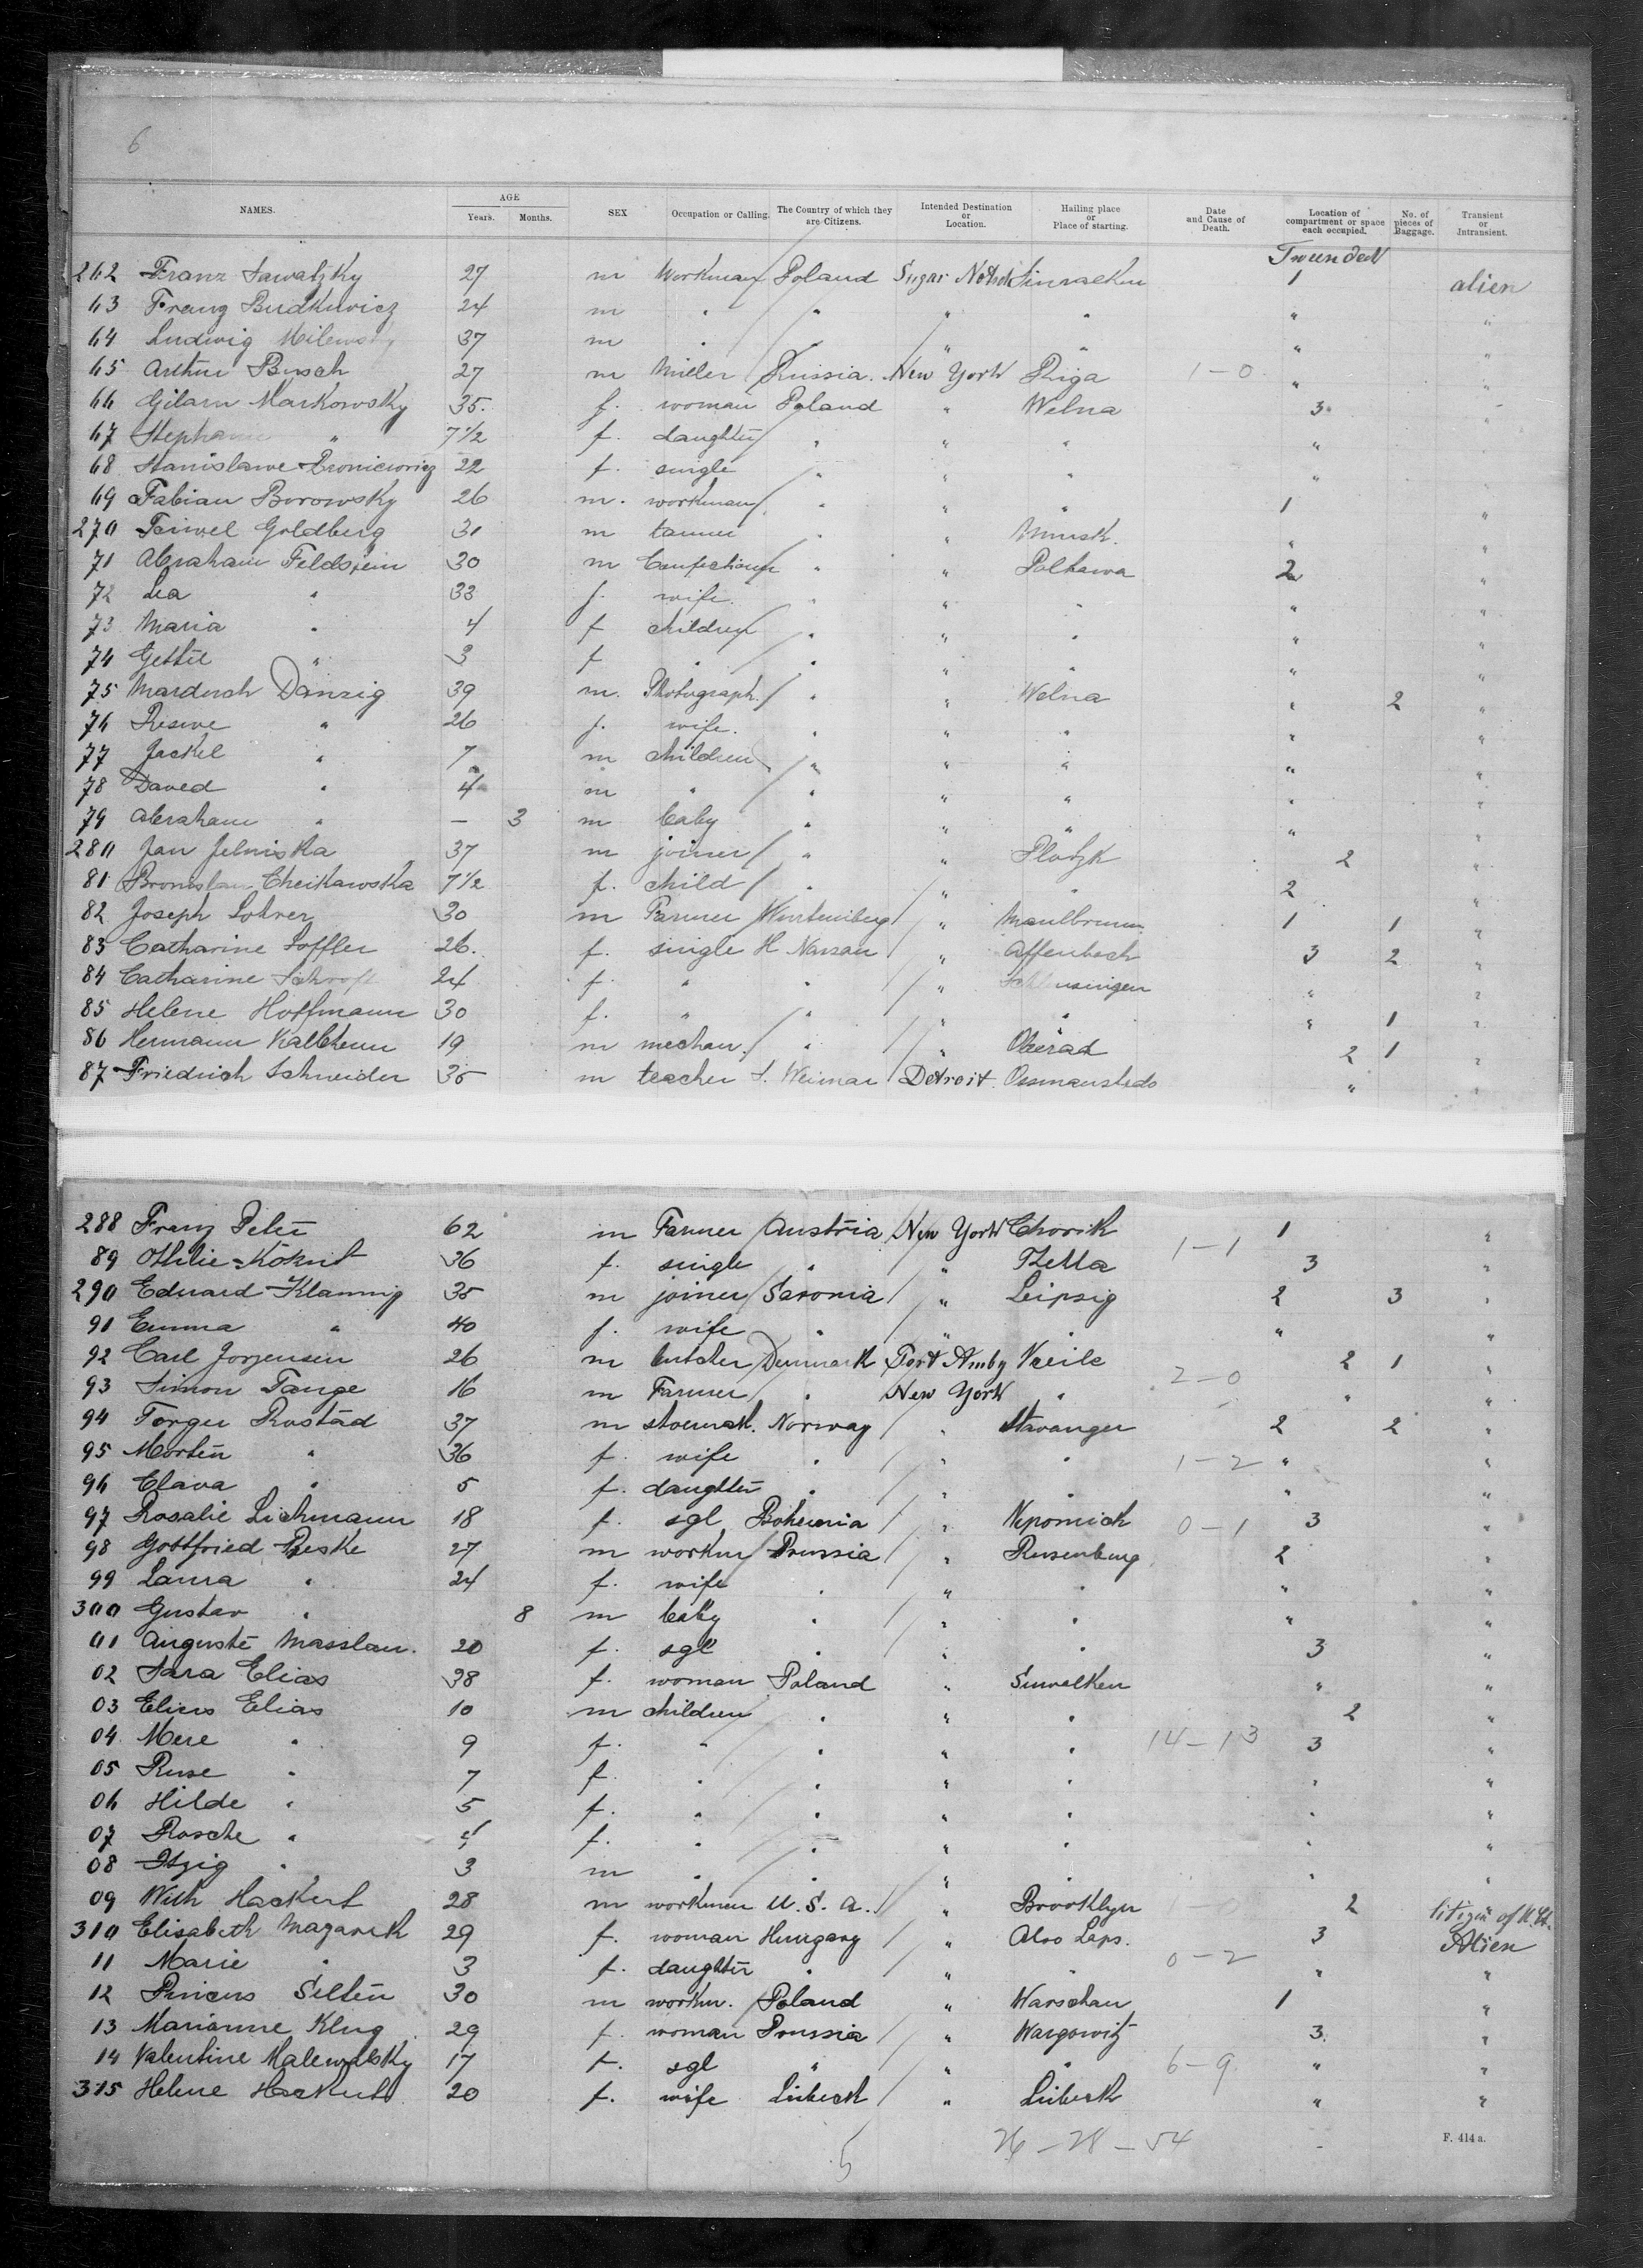 6
NAMES. AGE Years. Months. SEX Occupation or Calling. The Country of which they are Citizens. Intended Destination or Location. Hailing place or Place of starting. Date and Cause of Death. Location of compartment or space each occupied. No. of pieces of Baggage. Transient or Intransient.
262 Franz Sawatzky 27 m Workman Poland Sugar Notch 1 alien
63 Franz Budkuwicz 24 m " " " " " "
64 Ludwig Milewsky 37 m " " " " " "
65 Arthur Busch 27 m Miller Russia. New York Riga 1-0 " "
66 Gilarn Markowsky 35. f. woman Poland " Welna 3 "
67 Stephanie " 7 1/2 f. daughter " " " " "
68 Stanislawe 22 f. single " " " " "
69 Fabian Borowsky 26 m. workman " " " 1 "
270 Feiwel Goldberg 31 m tanner " " Minsk. " "
71 Abraham Feldstein 30 m " " Poltawa 2 "
72 Lea " 33 f. wife. " " " " "
73 Maria " 4 f children " " " " "
74 Gettil " 3 f " " " " " "
75 Marduch Danzig 39 m. Photograph. " " Welna " 2 "
76 Reswe " 26 f. wife. " " " " "
77 Jackel " 7 m children " " " " "
78 David " 4 m " " " " " "
79 Abraham " — 3 m baby " " " " "
280 Jan Jelniska 37 m joiner " " Plotzk 2 "
81 Bronislaw Cheikawska 7 1/2 f. child " " " 2 "
82 Joseph Lohrer 30 m Farmer Wurtemberg " Maulbrunn 1 1 "
83 Catharine Loffler 26. f. single H. Nassau " Offenbach 3 2 "
84 Catharine Schroof 24 f. " " " "
85 Helene Hoffmann 30 f. " " " " " 1 "
86 Hermann Kalbhenn 19 m mechan. " " Oberad 2 1 "
87 Friedrich Schneider 35 m teacher S. Weimar Detroit. Ossmanstedt " "
288 Franz Peter 62 m Farmer Austria New York Chorik 1-1 1 "
89 Othilie Kökrit 36 f. single " " Zella 3 "
290 Eduard Klannig 35 m joiner Saxonia " Leipzig 2 3 "
91 Emma " 40 f. wife " " " " "
92 Carl Jorgensen 26 m butcher Denmark Port Amby Veile 2 1 "
93 Simon Tange 16 m Farmer " New York " 2-0 " "
94 Torger Rostad 37 m shoemak. Norway " Stavanger 2 2 "
95 Morten " 36 f. wife " " " 1-2 " "
96 Clava " 5 f. daughter " " " " "
97 Rosalie Lichmann 18 f. sgl Bohemia " Nepomick 0-1 3 "
98 Gottfried Reske 27 m workm Prussia " Rosenburg 2 "
99 Laura " 24 f. wife " " " " "
300 Gustav " 8 m baby " " " " "
01 Auguste Masslau. 20 f. sgl " " " 3 "
02 Sara Elias 38 f. woman Poland " Suwalken " "
03 Elias 10 m children " " " 2 "
04 Mere " 9 f. " " " " 14-13 3 "
05 Ruse " 7 f. " " " " " "
06 Hilde " 5 f. " " " " " "
07 Rosche " 4 f. " " " " " "
08 Itzig " 3 m " " " " " "
09 Wilh Hackert 28 m workman U. S. A. " Brooklyn 1-0 2 citizen of U. St.
310 Elisabeth Magarek 29 f. woman Hungary " Also Laps. 3 Alien
11 Marie " 3 f. daughter " " " 0-2 " "
12 Pincus Selten 30 m workm. Poland " Warschau 1 "
13 Marianne Klug 29 f. woman Prussia " Wargowitz 3 "
14 Valentine Malewalsky 17 f. sgl " " " 6-9 " "
315 Helene Hackert 20 f. wife Lübeck " Lübeck " "
5 26-28-54 F. 414 a.